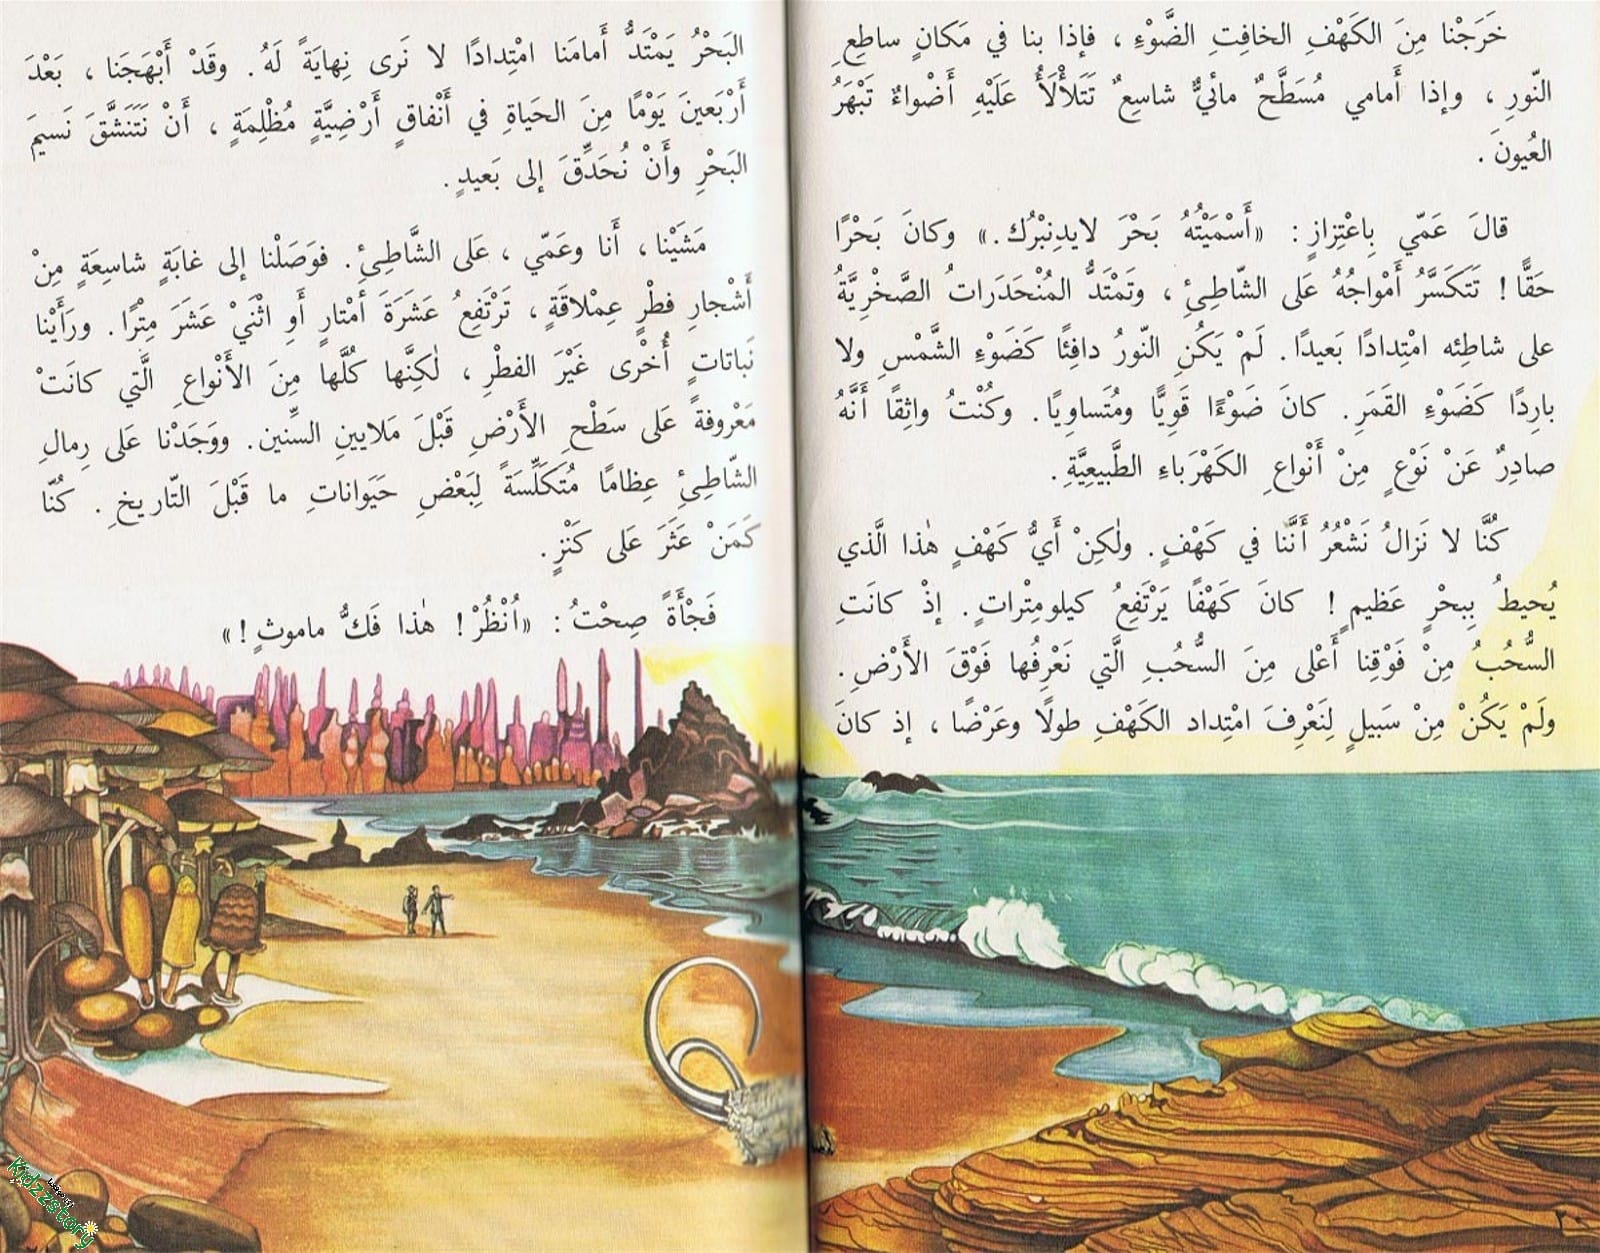 خَرَجْنا مِنَ الكَهْفِ الخافِتِ الضَّوْءِ ، فإذا بنا في مَكانٍ ساطِعِ
النّورِ ، وإذا أَمامي مُسَطَّحٌ مائيٌّ شاسِعٌ تَتَلأْلَأُ عَلَيْهِ أَضْواءٌ تَبْهَرُ
العُيونَ .
قالَ عَمّي بِاعْتِزازٍ : «أَسْمَيْتُهُ بَحْرَ لايدِنْبْرُك .» وكانَ بَحْرًا
حَقًّا ! تَتَكَسَّرُ أَمْواجُهُ عَلى الشّاطِئِ ، وتَمْتَدُّ المُنْحَدَراتُ الصَّخْرِيَّةُ
على شاطِئه امْتِدادًا بَعيدًا . لَمْ يَكُنِ النّورُ دافِئًا كَضَوْءِ الشَّمْسِ ولا
بارِدًا كَضَوْءِ القَمَرِ . كانَ ضَوْءًا قَوِيًّا ومُتَساوِيًا . وكُنْتُ واثِقًا أَنَّهُ
صادِرٌ عَنْ نَوْعٍ مِنْ أَنْواعِ الكَهْرَباءِ الطَّبيعِيَّةِ .
كُنَّا لا نَزالُ نَشْعُرُ أَنَّنا في كَهْفٍ . ولٰكِنْ أَيُّ كَهْفٍ هٰذا الَّذي
يُحيطُ بِبحْرٍ عَظيمٍ ! كانَ كَهْفًا يَرْتَفِعُ كيلومِتْراتٍ . إذْ كانَتِ
السُّحُبُ مِنْ فَوْقِنا أَعْلى مِنَ السُّحُبِ الَّتي نَعْرِفُها فَوْقَ الأَرْضِ .
ولَمْ يَكُنْ مِنْ سَبيلٍ لِنَعْرِفَ امْتِداد الكَهْفِ طولًا وعَرْضًا ، إذ كانَ
٣٠
البَحْرُ يَمْتَدُّ أَمامَنا امْتِدادًا لا نَرى نِهايَةً لَهُ . وقَدْ أَبْهَجَنا ، بَعْدَ
أَرْبَعينَ يَوْمًا مِنَ الحَياةِ في أَنْفاقٍ أَرْضِيَّةٍ مُظْلِمَةٍ ، أَنْ نَتَنَشَّقَ نَسيمَ
البَحْرِ وأَنْ نُحَدِّقَ إلى بَعيدٍ .
مَشَيْنا ، أَنا وعَمّي ، عَلى الشَّاطِئِ . فوَصَلْنا إلى غابَةٍ شاسِعَةٍ مِنْ
أَشْجارِ فطْرٍ عِمْلاقَةٍ ، تَرْتَفِعُ عَشَرَةَ أَمْتارٍ أَوِ اثْنَيْ عَشَرَ مِتْرًا . ورَأَيْنا
نَباتاتٍ أُخْرى غَيْرَ الفطْرِ ، لٰكِنَّها كُلَّها مِنَ الأَنْواعِ الَّتي كانَتْ
مَعْروفةً عَلى سَطْحِ الأَرْضِ قَبْلَ مَلايينِ السِّنين . ووَجَدْنا عَلى رِمالِ
الشّاطِئِ عِظامًا مُتَكَلِّسَةً لِبَعْضِ حَيَواناتِ ما قَبْلَ التّاريخِ . كُنّا
كَمَنْ عَثَرَ عَلى كَنْزٍ .
فَجْأَةً صِحْتُ : «اُنْظُرْ ! هٰذا فَكُّ ماموثٍ !»
kidzzstory